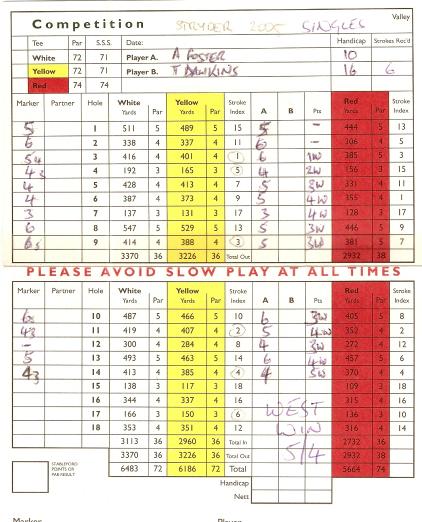 Valley
Competition STRYDER 2005 SINGLES
Tee Par S.S.S. Date: Handicap Strokes Rec'd
White 72 71 Player A. A FOSTER 10
Yellow 72 71 Player B. T DAWKINS 16 6
Red 74 74
Marker Partner Hole White Yards Par Yellow Yards Par Stroke Index A B Pts Red Yards Par Stroke Index
5 1 511 5 489 5 15 5 – 444 5 13
6 2 338 4 337 4 11 6 – 306 4 5
54 3 416 4 401 4 1 6 1W 385 5 3
43 4 192 3 165 3 5 4 2W 156 3 15
4 5 428 4 413 4 7 5 3W 331 4 11
4 6 387 4 373 4 9 5 4W 355 4 1
3 7 137 3 131 3 17 3 4W 128 3 17
6 8 547 5 529 5 13 5 3W 446 5 9
65 9 414 4 388 4 3 5 3W 381 5 7
3370 36 3226 36 Total Out 2932 38
PLEASE AVOID SLOW PLAY AT ALL TIMES
Marker Partner Hole White Yards Par Yellow Yards Par Stroke Index A B Pts Red Yards Par Stroke Index
6 10 487 5 466 5 10 6 3W 405 5 8
43 11 419 4 407 4 2 5 4W 352 4 2
– 12 300 4 284 4 8 4 3W 272 4 12
5 13 493 5 463 5 14 6 4W 457 5 6
43 14 413 4 385 4 4 4 5W 370 4 4
15 138 3 117 3 18 109 3 18
16 344 4 337 4 16 315 4 16
17 166 3 150 3 6 WEST 136 3 10
18 353 4 351 4 12 WIN 316 4 14
3113 36 2960 36 Total In 5/4 2732 36
3370 36 3226 36 Total Out 2932 38
6483 72 6186 72 Total 5664 74
STABLEFORD POINTS OR PAR RESULT
Handicap
Nett
Marker Player